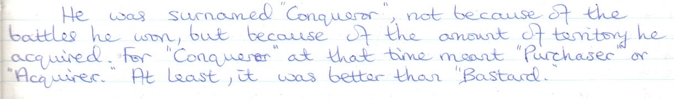 He was surnamed "Conqueror", not because of the
battles he won, but because of the amount of territory he
acquired. For "Conqueror" at that time meant "Purchaser" or
"Acquirer." At Least, it was better than "Bastard."